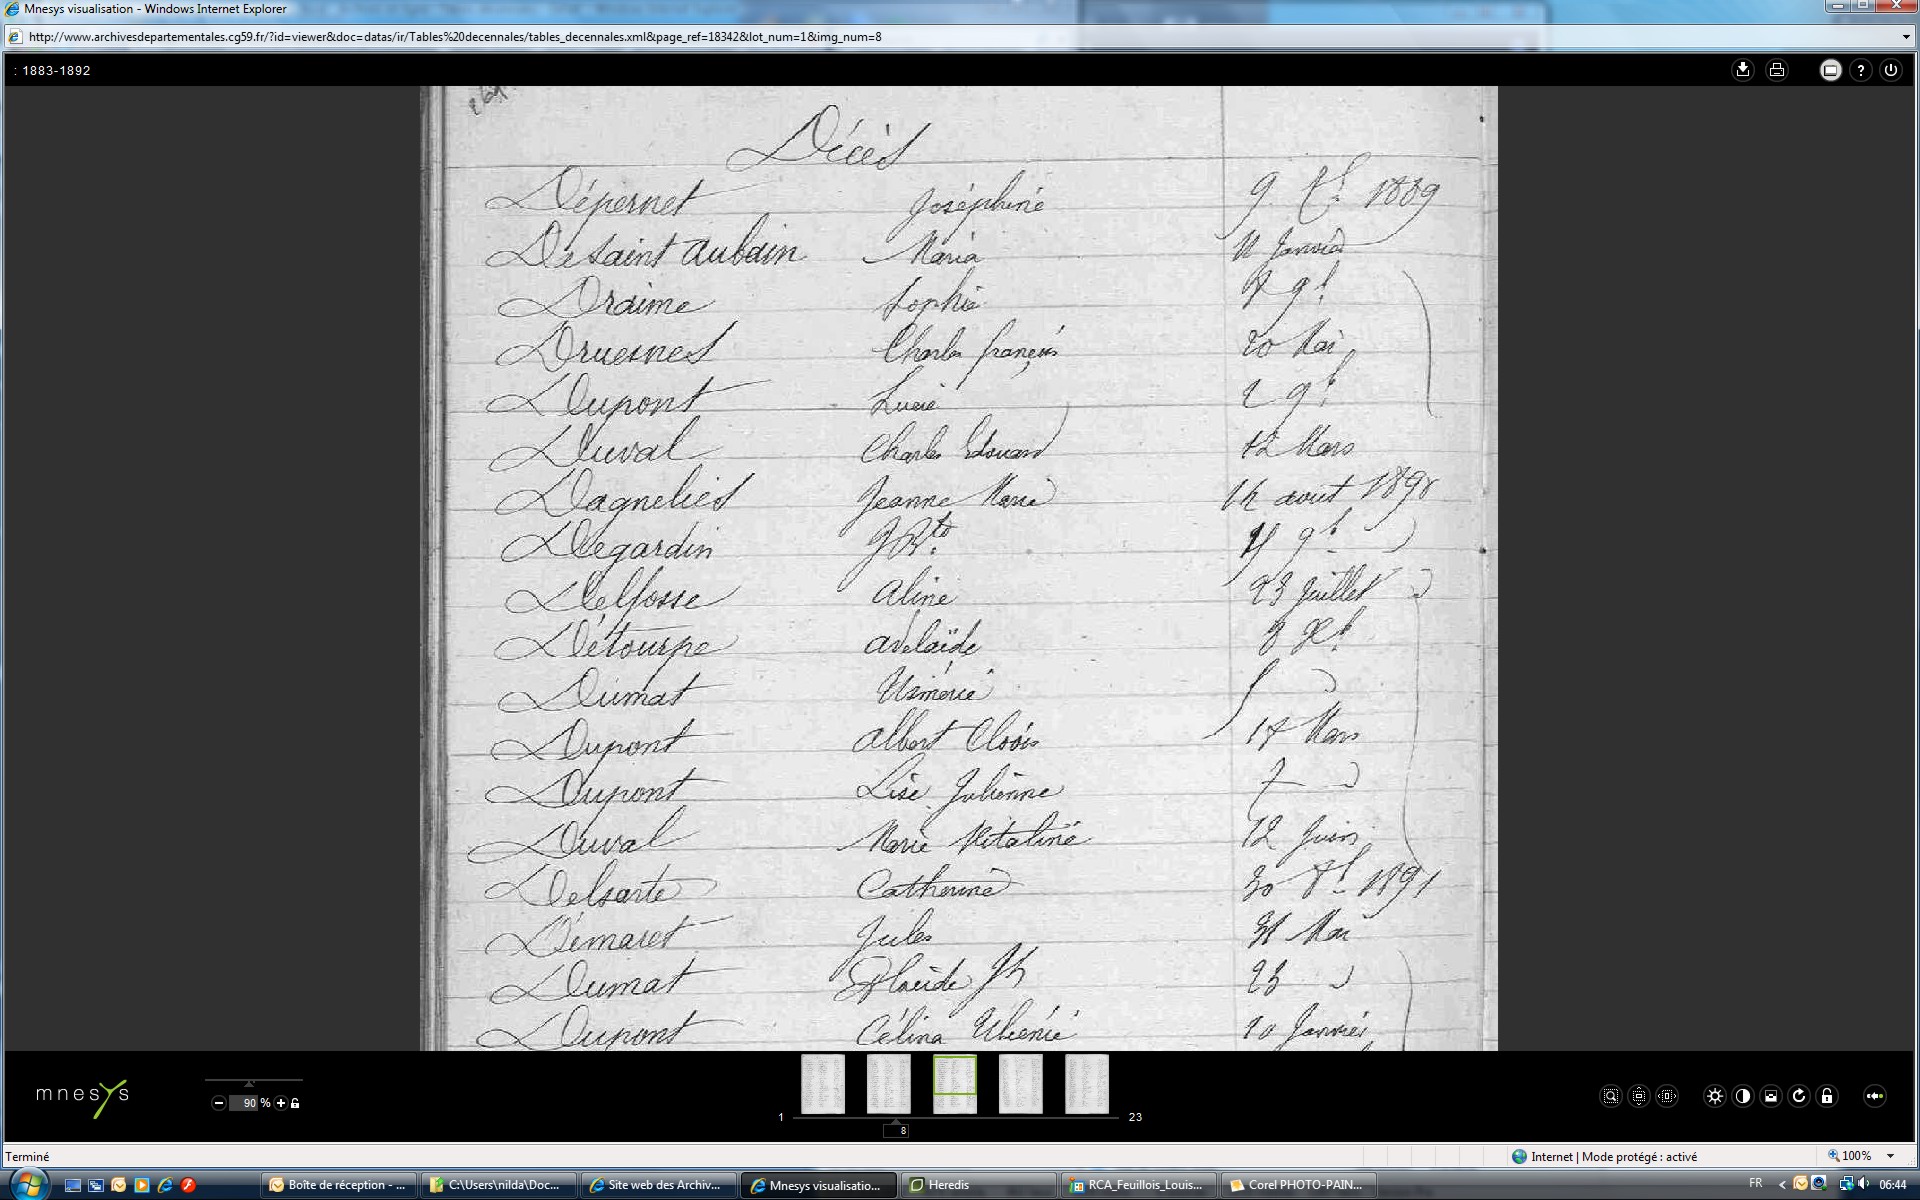 Mnesys visualisation - Windows Internet Explorer
http://www.archivesdepartementales.cg59.fr/?id=viewer&doc=datas/ir/Tables%20decennales/tables_decennales.xml&page_ref=18342&lot_num=1&img_num=8
: 1883-1892
Décès
Dépernet Joséphine 9 1889
Desaint aubain Maria 11 Janvier
Draime Sophie 9b
Druesnes Charles françois 20 Mai
Dupont Lucie 2 9b
Duval Charles Edouard 12 Mars
Dagnelies Jeanne Marie 14 août 1890
Degardin 9b
Delfosse Aline 23 Juillet
Détourpe adelaïde Xb
Dumat
Dupont albert Clovis 17 Mars
Dupont Lise Julienne 7
Duval Marie Vitaline 12 Juin
Delsarte Catherine 30 1891
Démaret Jules 31 Mai
Dumat Placide Jh 23
Dupont Célina 20 Janvier
mnesys
90 %
1 23
8
Terminé
Internet | Mode protégé : activé
100%
Boîte de réception - ...
C:\Users\nilda\Doc...
Site web des Archiv...
Mnesys visualisatio...
Heredis
RCA_Feuillois_Louis...
Corel PHOTO-PAIN...
FR
06:44